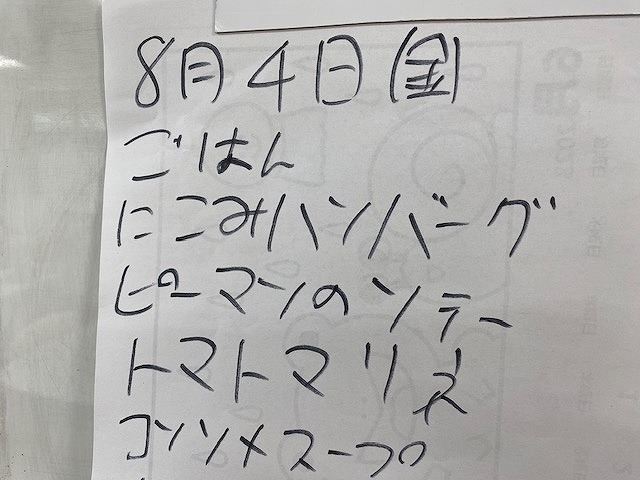 8月4日(金)
ごはん
にこみハンバーグ
ピーマンのソテー
トマトマリネ
コンソメスープ